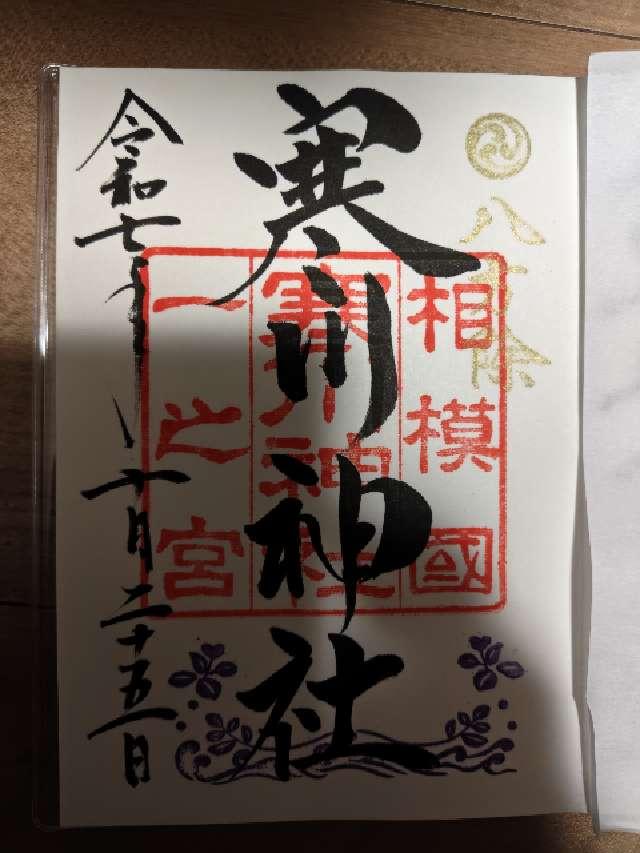 八方除
相模國
寒川神社
一之宮
寒川神社
令和七年十月二十五日